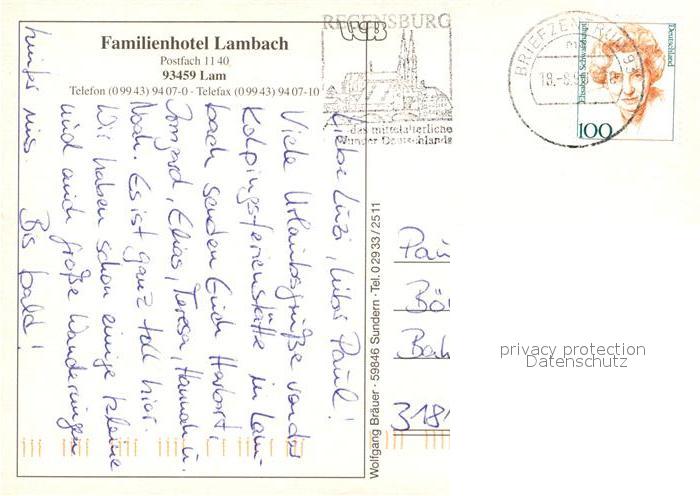 Familienhotel Lambach
Postfach 11 40
93459 Lam
Telefon (0 99 43) 94 07-0 · Telefax (0 99 43) 94 07-10
Liebe Luzi, lieber Paul!
Viele Urlaubsgrüße von der
Kolpingsferienstätte in Lam-
bach senden Euch Herbert,
Irmgard, Elias, Teresa, Hannah u.
Noah. Es ist ganz toll hier.
Wir haben schon einige kleine
und auch große Wanderungen
hinter uns. Bis bald!
Wolfgang Bräuer · 59846 Sundern · Tel. 02933/2511
REGENSBURG
das mittelalterliche
Wunder Deutschlands
BRIEFZENTRUM 93
18.-8.9
Deutschland
Elisabeth Schwarzhaupt
100
Pau
Bö
Bah
3181
privacy protection
Datenschutz